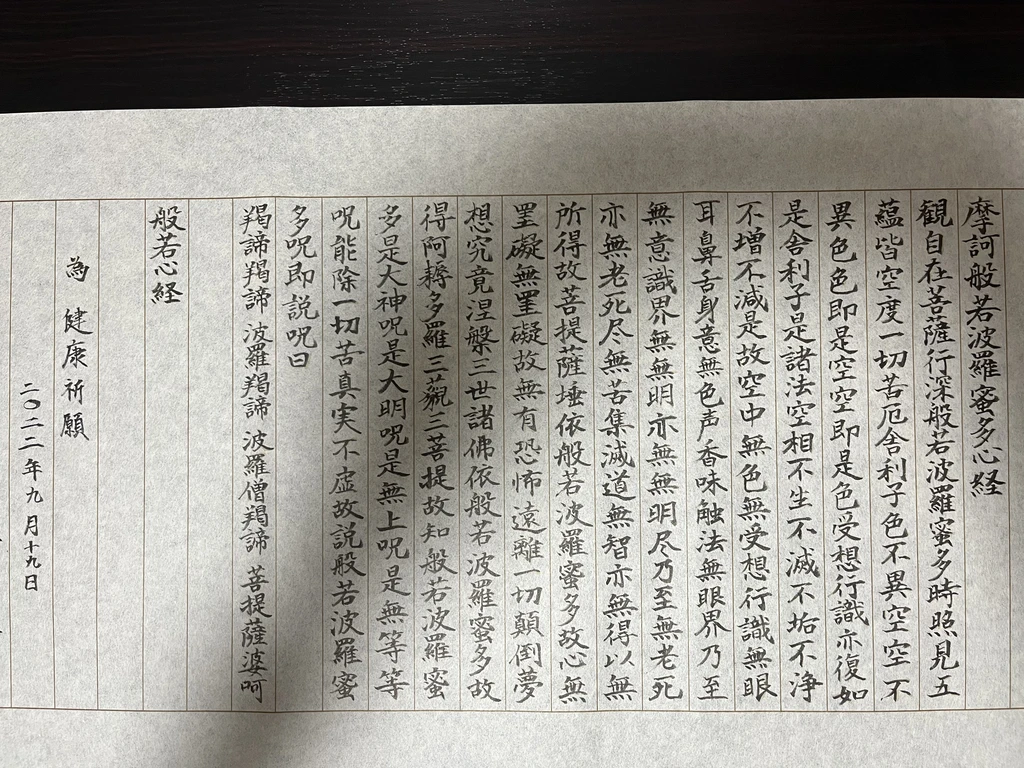 摩訶般若波羅蜜多心経
観自在菩薩行深般若波羅蜜多時照見五
蘊皆空度一切苦厄舎利子色不異空空不
異色色即是空空即是色受想行識亦復如
是舎利子是諸法空相不生不滅不垢不浄
不増不減是故空中無色無受想行識無眼
耳鼻舌身意無色声香味触法無眼界乃至
無意識界無無明亦無無明尽乃至無老死
亦無老死尽無苦集滅道無智亦無得以無
所得故菩提薩埵依般若波羅蜜多故心無
罣礙無罣礙故無有恐怖遠離一切顛倒夢
想究竟涅槃三世諸佛依般若波羅蜜多故
得阿耨多羅三藐三菩提故知般若波羅蜜
多是大神呪是大明呪是無上呪是無等等
呪能除一切苦真実不虚故説般若波羅蜜
多呪即説呪曰
羯諦羯諦 波羅羯諦 波羅僧羯諦 菩提薩婆呵
般若心経
為 健康祈願
二〇二二年九月十九日